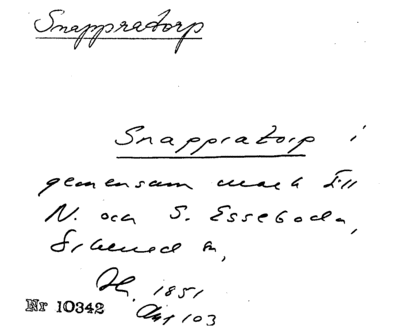 Snappratorp
Snappratorp i
gemensam mark till
N. och S. Esseboda,
Örkened sn,
1851
Nr 10342 Akt 103